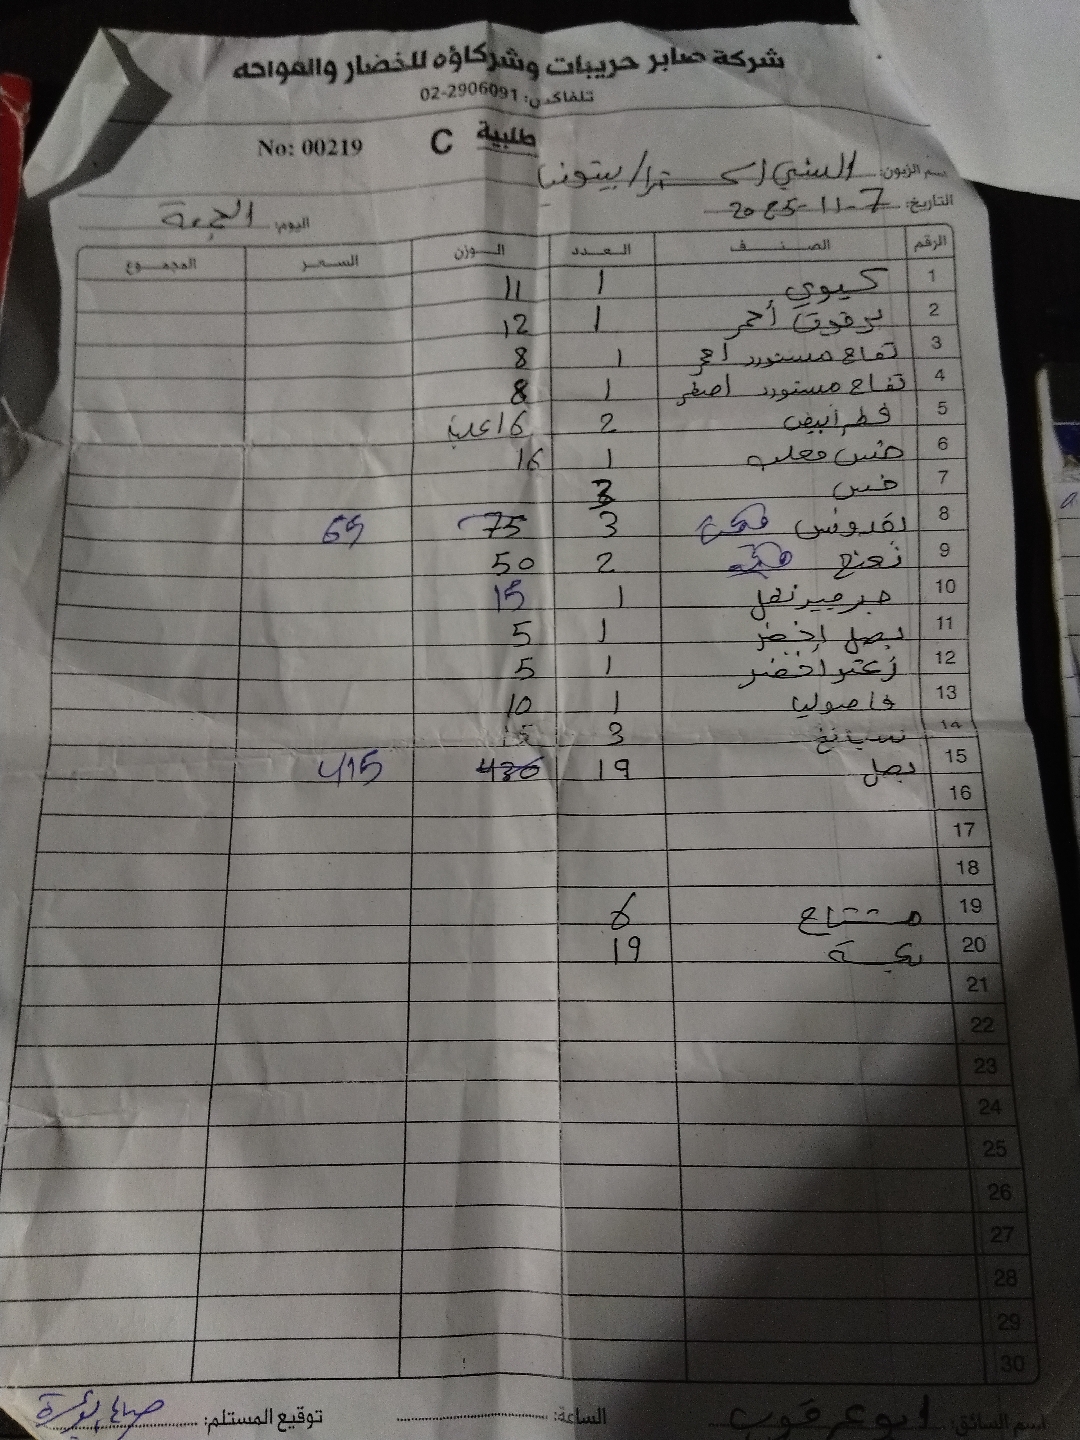 شركة صابر حريبات وشركاؤه للخضار والفواكه
تلفاكس: 02-2906091
طلبية C No: 00219
اسم الزبون: السني اكسترا / بيتونيا
التاريخ: 7-11-2025
اليوم: الجمعة
الرقم الصنف العدد الوزن السعر المجموع
1 كيوي 1 11
2 برقوق أحمر 1 12
3 تفاح مستورد احمر 1 8
4 تفاح مستورد اصفر 1 8
5 فطر أبيض 2 16 علب
6 خس معلب 1 16
7 خس 3
8 بقدونس 3 75 69
9 نعنع 2 50
10 جرجير نخل 1 15
11 بصل اخضر 1 5
12 زعتر اخضر 1 5
13 فاصوليا 1 10
14 سبانخ 3 15
15 بصل 19 436 415
16
17
18
19 مشتاح 6
20 بكسة 19
21
22
23
24
25
26
27
28
29
30
اسم السائق: ابو عرقوب الساعة: توقيع المستلم: